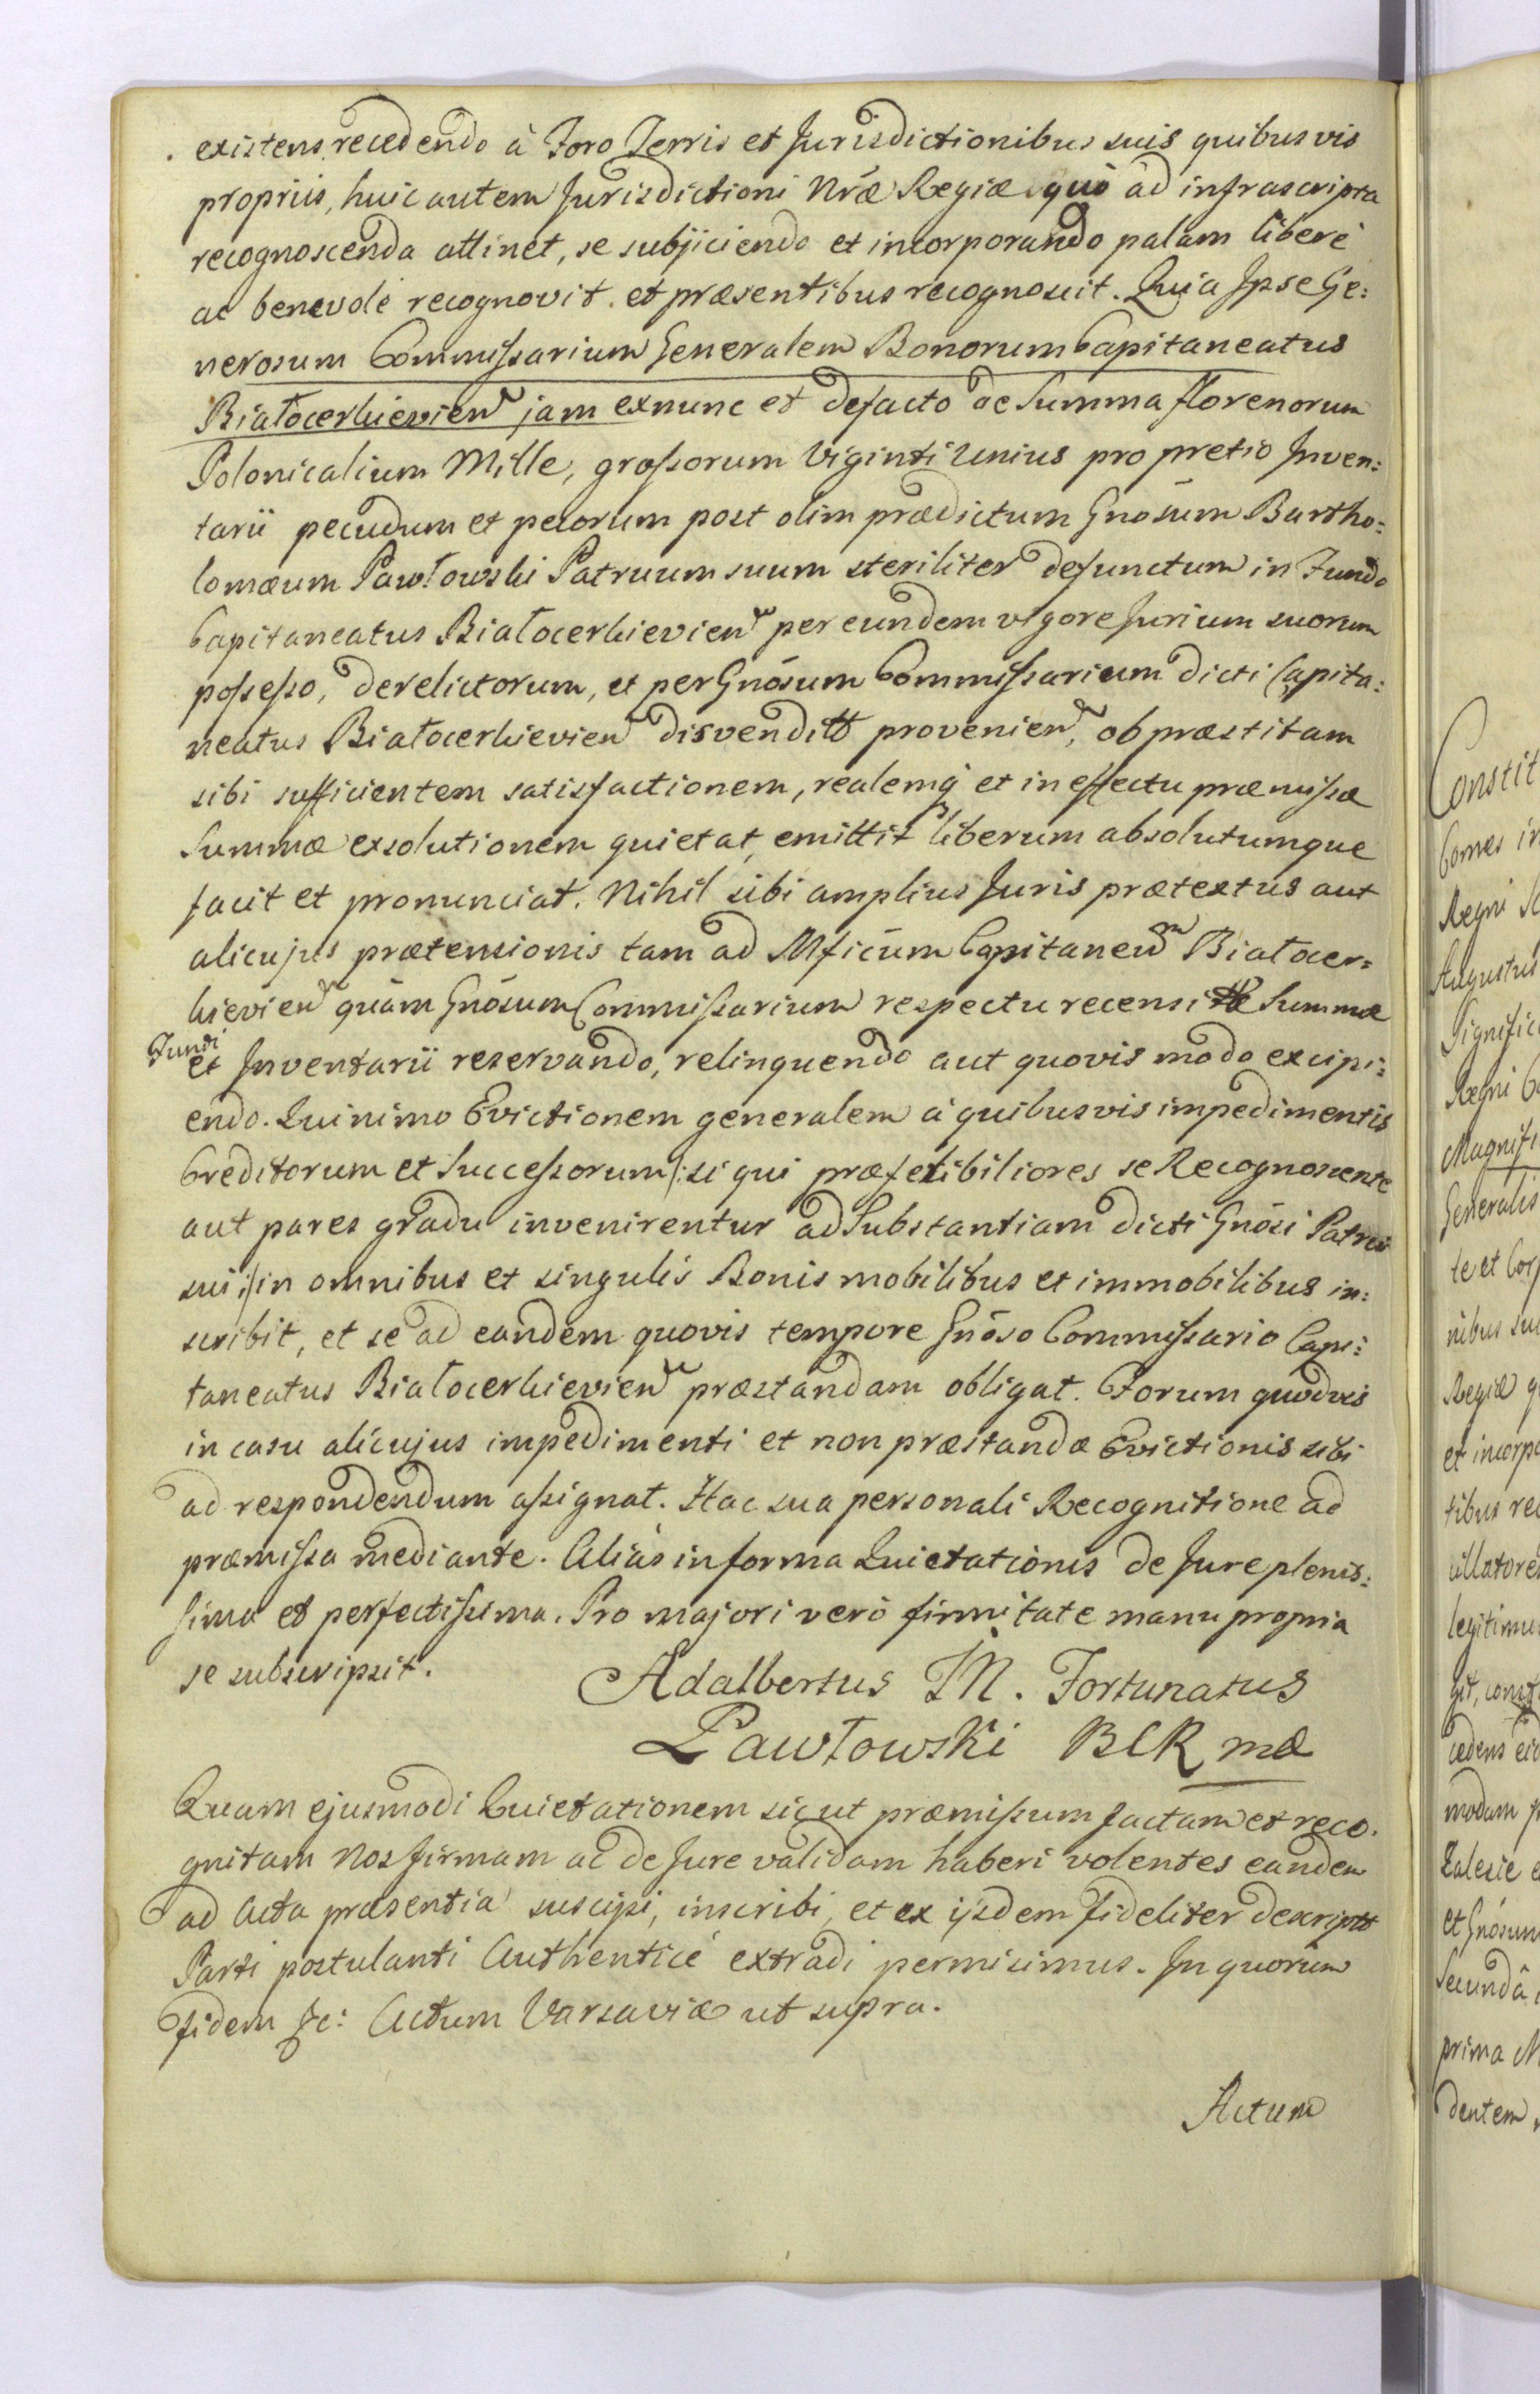 existens, recedendo à Foro Terris et Jurisdictionibus suis quibusvis
propriis, huic autem Jurisdictioni Nræ Regiæ quò ad infrascripta
recognoscenda attinet, se subjiciendo et incorporando palam liberè
ac benevolè recognovit. et præsentibus recognoscit. Quia Ipse Ge:
nerosum Commissarium Generalem Bonorum Capitaneatus
Białocerkievien jam exnunc et defacto de Summa florenorum
Polonicalium Mille, grossorum Viginti Unius pro pretio Inven:
tarii pecudum et pecorum post olim prædictum Gnosum Bartho:
lomæum Pawłowski Patruum suum steriliter defunctum in Fundo
Capitaneatus Białocerkievien per eundem vigore Jurium suorum
possesso, derelictorum, et per Gnosum Commissarium dicti Capita:
neatus Białocerkievien disvendit provenien, ob præstitam
sibi sufficientem satisfactionem, realemq et in effectu præmissæ
Summæ exsolutionem quietat, emittit liberum absolutumque
facit et pronunciat. Nihil sibi amplius Juris prætextus aut
alicujus prætensionis tam ad Mficum Capitaneum Białocer=
kievien quàm Gnosum Commissarium respectu recensitæ Summæ
Fundi
et Inventarii reservando, relinquendo aut quovis modo excipi:
endo. Quinimo Evictionem generalem à quibusvis impedimentis
Creditorum et Successorum /: si qui præferibiliores se Recognoscente
aut pares gradu invenirentur ad Substantiam dicti Gnosi Patrui
sui :/ in omnibus et singulis Bonis mobilibus et immobilibus in:
scribit, et se ad eandem quovis tempore Gnoso Commissario Capi:
taneatus Białocerkievien præstandam obligat. Forum quodvis
in casu alicujus impedimenti et non præstandæ Evictionis sibi
ad respondendum assignat. Hac sua personali Recognitione ad
præmissa mediante. Aliàs in forma Quietationis de Jure plenis:
sima et perfectissima. Pro majori verò firmitate manu propria
se subscripsit.
Adalbertus M. Fortunatus
Pawłowski BCR
Quam ejusmodi Quietationem sicut præmissum factam et reco.
gnitam Nos firmam ac de Jure validam haberi volentes eandem
ad Acta præsentia suscipi, inscribi, et ex ijsdem fideliter descript
Parti postulanti Authenticè extradi permisimus. In quorum
fidem &c: Actum Varsaviæ ut supra.
Actum
Constit
Comes in
Regni
Augustus
Signific
Regni
Magnifi
Generalis
te et Cor
nibus su
Regiæ q
et incorpo
tibus rec
legitimu
cedens
modum p
Zalesie e
et Gnosum
Secundâ
prima
dentem